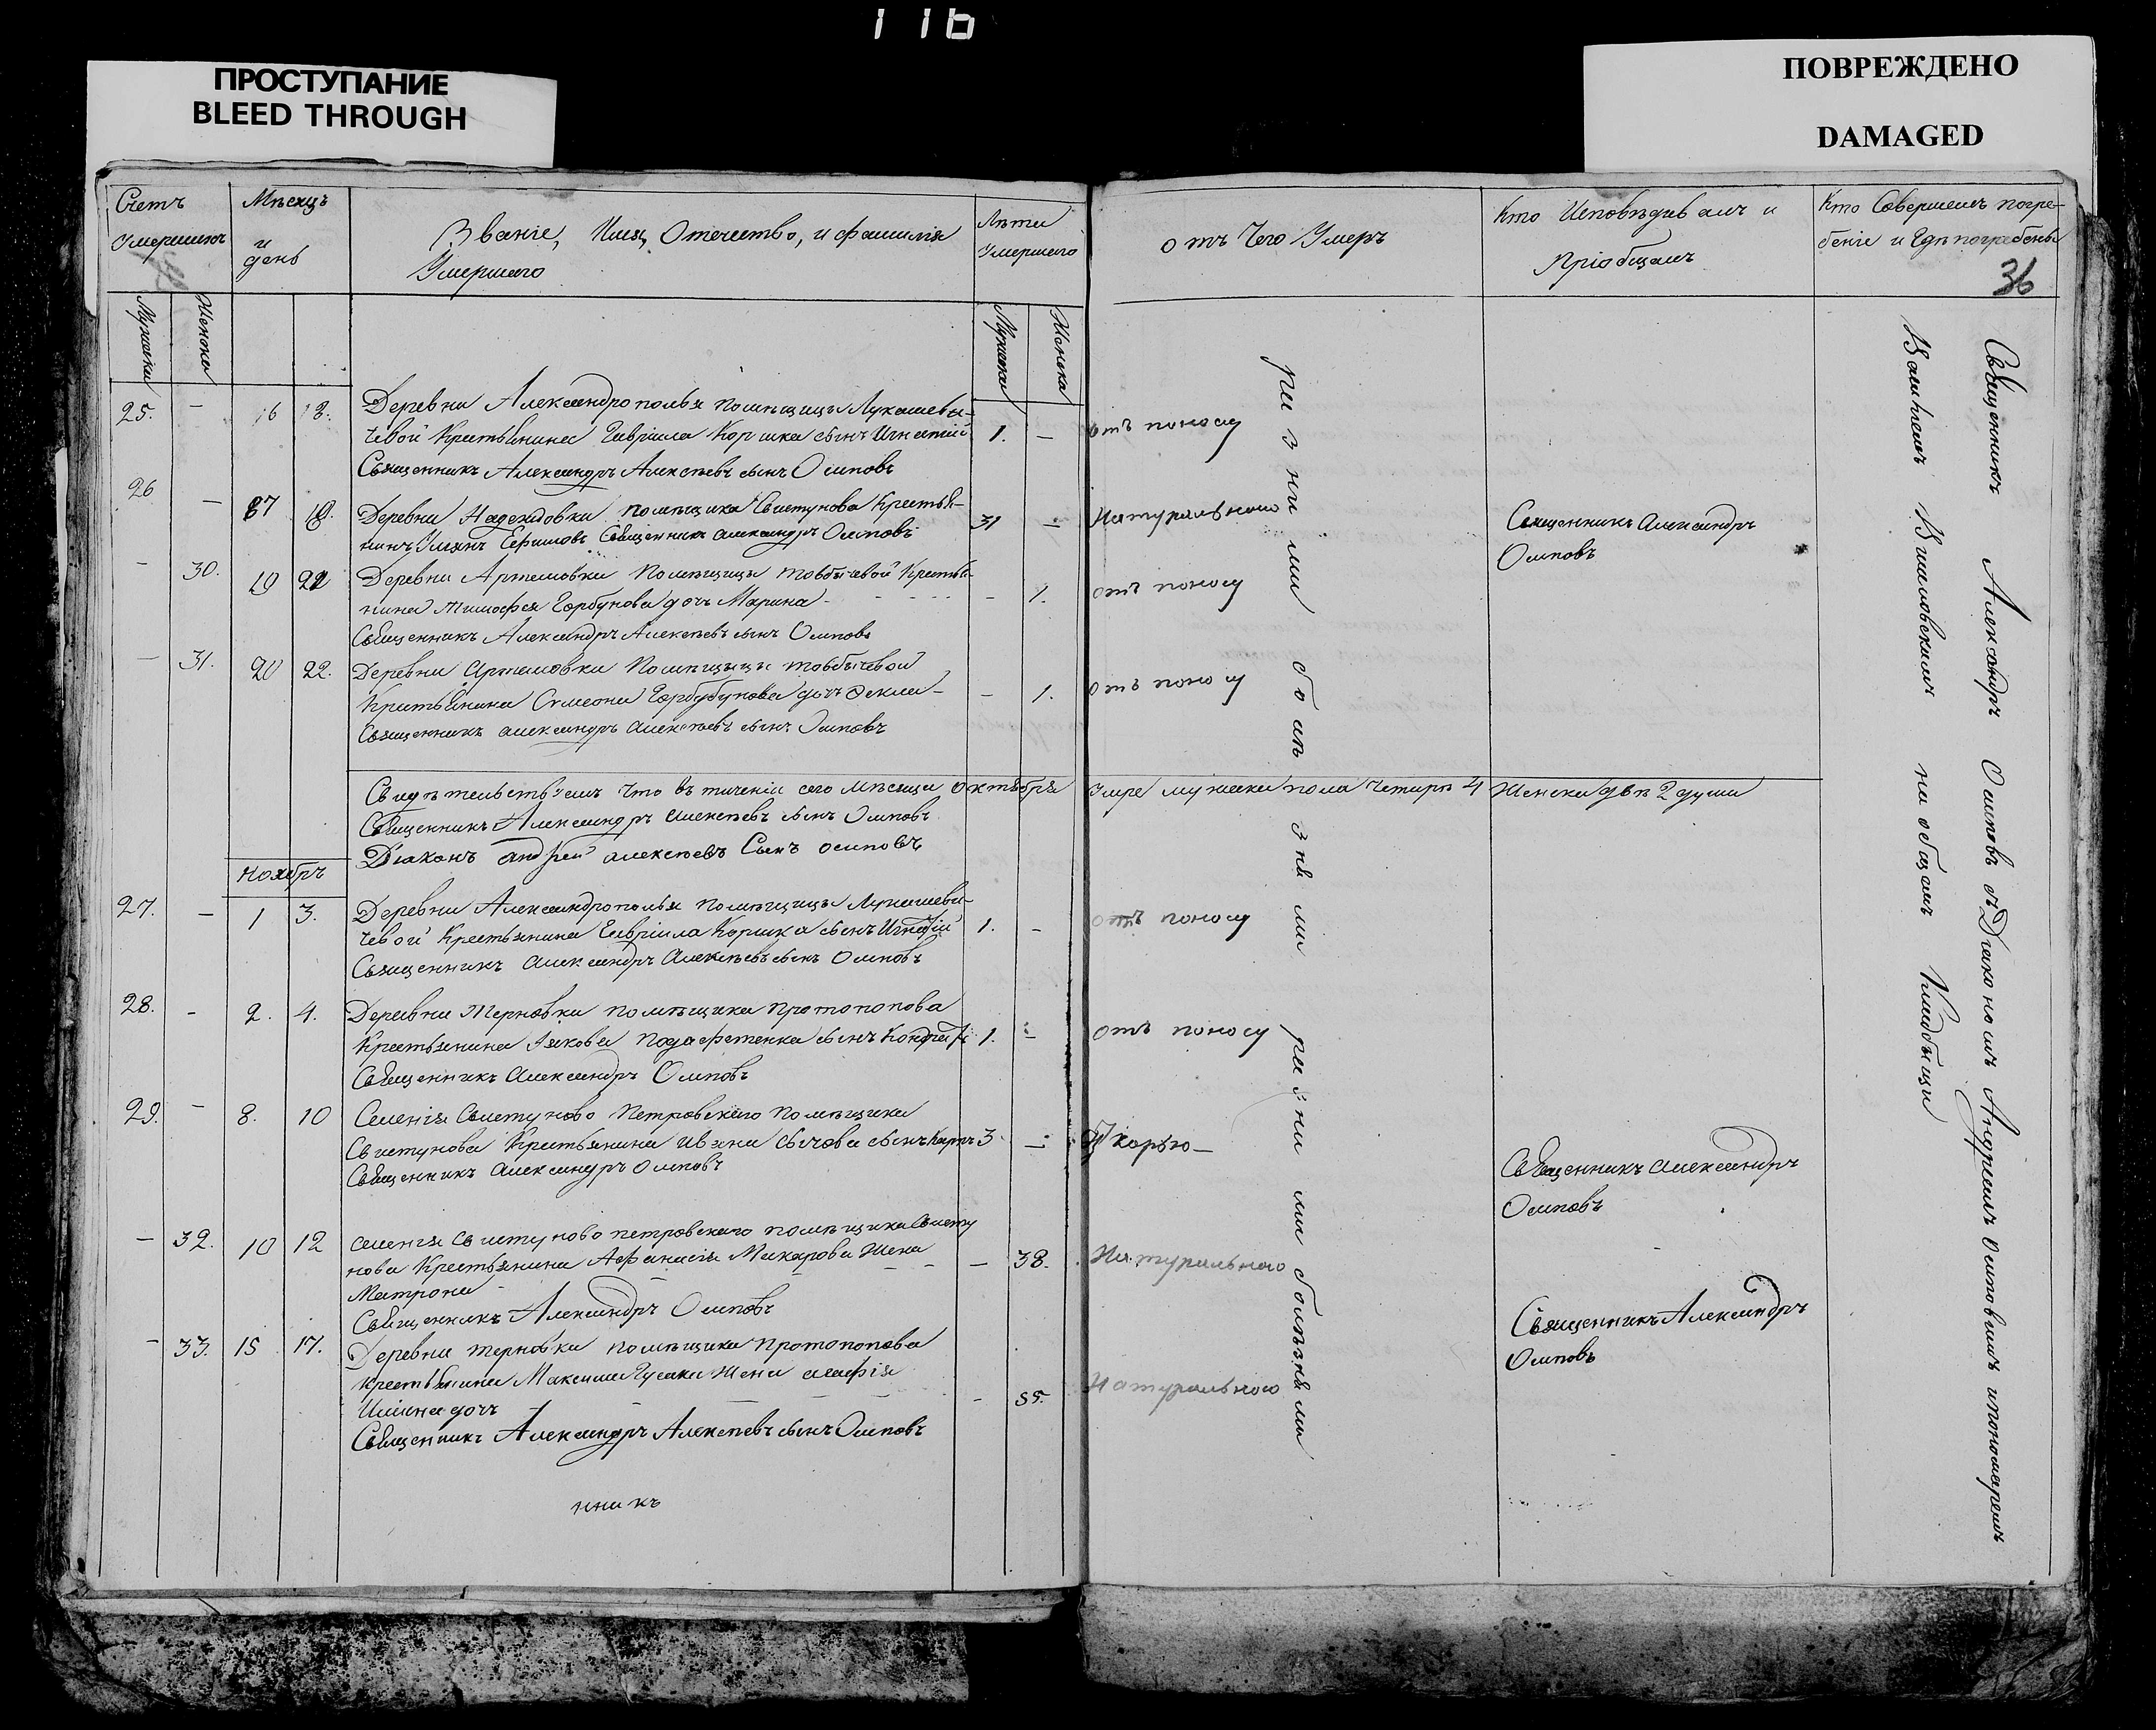 116
ПРОСТУПАНИЕ
BLEED THROUGH
ПОВРЕЖДЕНО
DAMAGED
Счетъ
Умершихъ
Мѣсяцъ
и
день
Званіе, Имя, Отечество, и фамилія
Умершаго
Лѣта
Умершаго
отъ Чего Умеръ
Кто Исповѣдывалъ и
Пріобщалъ
Кто Совершалъ погре-
беніе и Гдѣ погребены
36
Мужеска
Женска
Мужеска
Женска
25. – 16 18. Деревни Александрополья помѣщицы Лукашеви-
чевой Крестьянина Гавріила Коршка сынъ Игнатій 1. – отъ поносу
Священникъ Александръ Алексѣевъ сынъ Осиповъ
26 – 17 19. Деревни Надеждовки помѣщика Свистунова Крестья-
нинъ Ефимовъ Священникъ Александръ Осиповъ 31 – Натурального Священникъ Александръ
Осиповъ
– 30. 19 21 Деревни Артемовки помѣщицы Товбычевой Крестья-
нина Тимофея Горбунова дочь Марина – 1. отъ поносу
Священникъ Александръ Алексѣевъ сынъ Осиповъ
– 31. 20 22. Деревни Артемовки Помѣщицы Товбычевой
Крестьянина Симеона Горбубунова дочь Фекла – – 1. отъ поносу
Священникъ Александръ Алексѣевъ сынъ Осиповъ
Свидѣтельствуемъ что въ теченіи сего мѣсяца октября Умре мужеска пола Четыре 4 Женска двѣ 2 души
Священникъ Александръ Алексѣевъ сынъ Осиповъ
Діаконъ Андрей Алексѣевъ Сынъ Осиповъ
Ноябрь
27. – 1 3. Деревни Александрополья помѣщицы Лукашеви-
чевой Крестьянина Гавріила Коршка сынъ Игнатій 1. – отъ поносу
Священникъ Александръ Алексѣевъ сынъ Осиповъ
28. – 2. 4. Деревни Терновки помѣщика Протопопова
Крестьянина Іякова сынъ 1. – отъ поносу
Священникъ Александръ Осиповъ
29. – 8. 10 Селенія Свистуново Петровскаго помѣщика
Свистунова Крестьянина Ивана Сычова сынъ Карпъ 3. – Корью –
Священникъ Александръ Осиповъ
Священникъ Александръ
Осиповъ
– 32. 10 12 селенія Свистуново петровскаго помѣщика Свисту
нова Крестьянина Афанасія Макарова Жена – 38. Натурального
Матрона
Священникъ Александръ Осиповъ
Священникъ Александръ
Осиповъ
– 33. 15 17. Деревни терновки помѣщика Протопопова
крестьянина Максима Гусака Жена Агафія
Ильина дочь – 55. Натурального
Священникъ Александръ Алексѣевъ сынъ Осиповъ
нникъ
разними болѣзнями разними болѣзнями
Священникъ Александръ Осиповъ съ Діакономъ Андреемъ Осиповымъ ипономаремъ
на общемъ Кладбищи